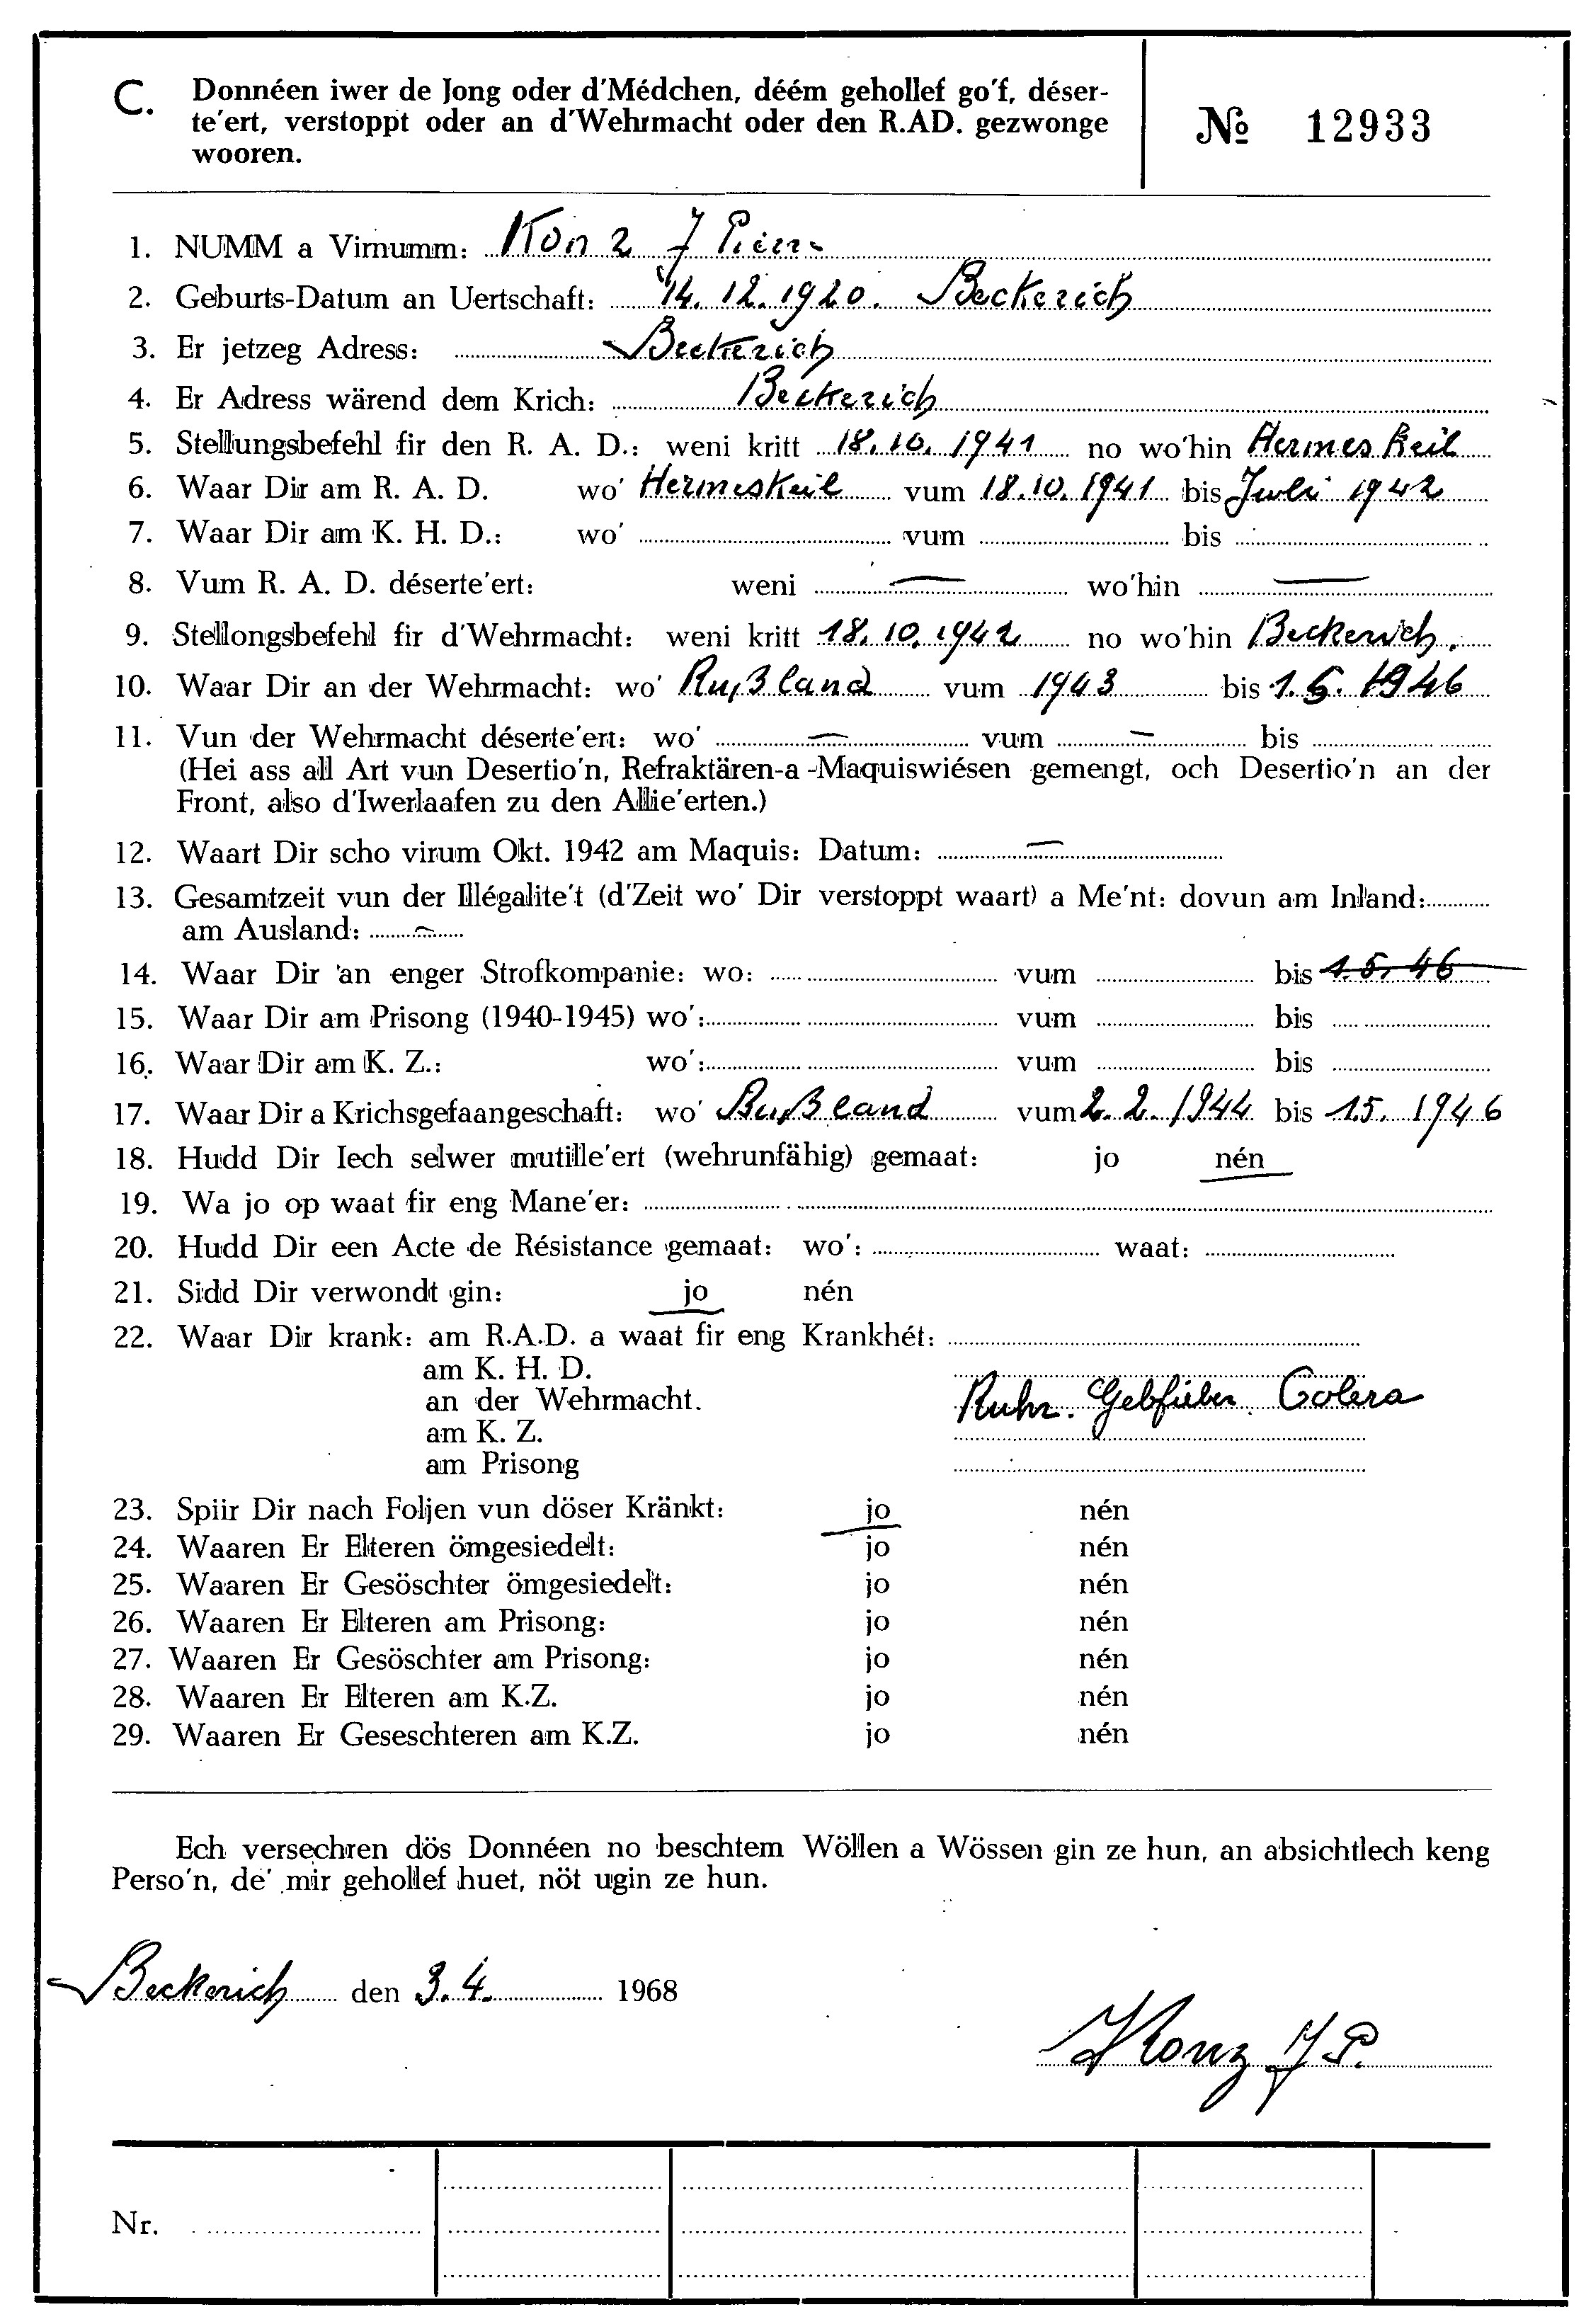 C. Donnéen iwer de Jong oder d'Médchen, déém gehollef go'f, déser-
te'ert, verstoppt oder an d'Wehrmacht oder den R.AD. gezwonge
wooren.
№ 12933
1. NUMM a Virnumm: Konz J Pierre
2. Geburts-Datum an Uertschaft: 14.12.1920. Beckerich
3. Er jetzeg Adress: Beckerich
4. Er Adress wärend dem Krich: Beckerich
5. Stellungsbefehl fir den R. A. D.: weni kritt 18.10.1941 no wo'hin Hermeskeil
6. Waar Dir am R. A. D. wo' Hermeskeil vum 18.10.1941 bis Juli 1942
7. Waar Dir am K. H. D.: wo' vum bis
8. Vum R. A. D. déserte'ert: weni — wo'hin —
9. Stellongsbefehl fir d'Wehrmacht: weni kritt 18.10.1942 no wo'hin Beckerich.
10. Waar Dir an der Wehrmacht: wo' Rußland vum 1943 bis 1.5.1946
11. Vun der Wehrmacht déserte'ert: wo' — vum — bis
(Hei ass all Art vun Desertio'n, Refraktären-a-Maquiswiésen gemengt, och Desertio'n an der
Front, also d'Iwerlaafen zu den Allie'erten.)
12. Waart Dir scho virum Okt. 1942 am Maquis: Datum: —
13. Gesamtzeit vun der Illégalite't (d'Zeit wo' Dir verstoppt waart) a Me'nt: dovun am Inland:
am Ausland: —
14. Waar Dir an enger Strofkompanie: wo: vum bis 1.5.46
15. Waar Dir am Prisong (1940-1945) wo': vum bis
16. Waar Dir am K. Z.: wo': vum bis
17. Waar Dir a Krichsgefaangeschaft: wo' Rußland vum 2.2.1944 bis 1.5.1946
18. Hudd Dir Iech selwer mutille'ert (wehrunfähig) gemaat: jo nén
19. Wa jo op waat fir eng Mane'er:
20. Hudd Dir een Acte de Résistance gemaat: wo': waat:
21. Sidd Dir verwondt gin: jo nén
22. Waar Dir krank: am R.A.D. a waat fir eng Krankhét:
am K. H. D.
an der Wehrmacht. Ruhr. Gebfieber. Colera
am K. Z.
am Prisong
23. Spiir Dir nach Foljen vun döser Kränkt: jo nén
24. Waaren Er Elteren ömgesiedelt: jo nén
25. Waaren Er Gesöschter ömgesiedelt: jo nén
26. Waaren Er Elteren am Prisong: jo nén
27. Waaren Er Gesöschter am Prisong: jo nén
28. Waaren Er Elteren am K.Z. jo nén
29. Waaren Er Geseschteren am K.Z. jo nén
Ech versechren dös Donnéen no beschtem Wöllen a Wössen gin ze hun, an absichtlech keng
Perso'n, de' mir gehollef huet, nöt ugin ze hun.
Beckerich den 3.4. 1968
Konz J P.
Nr.